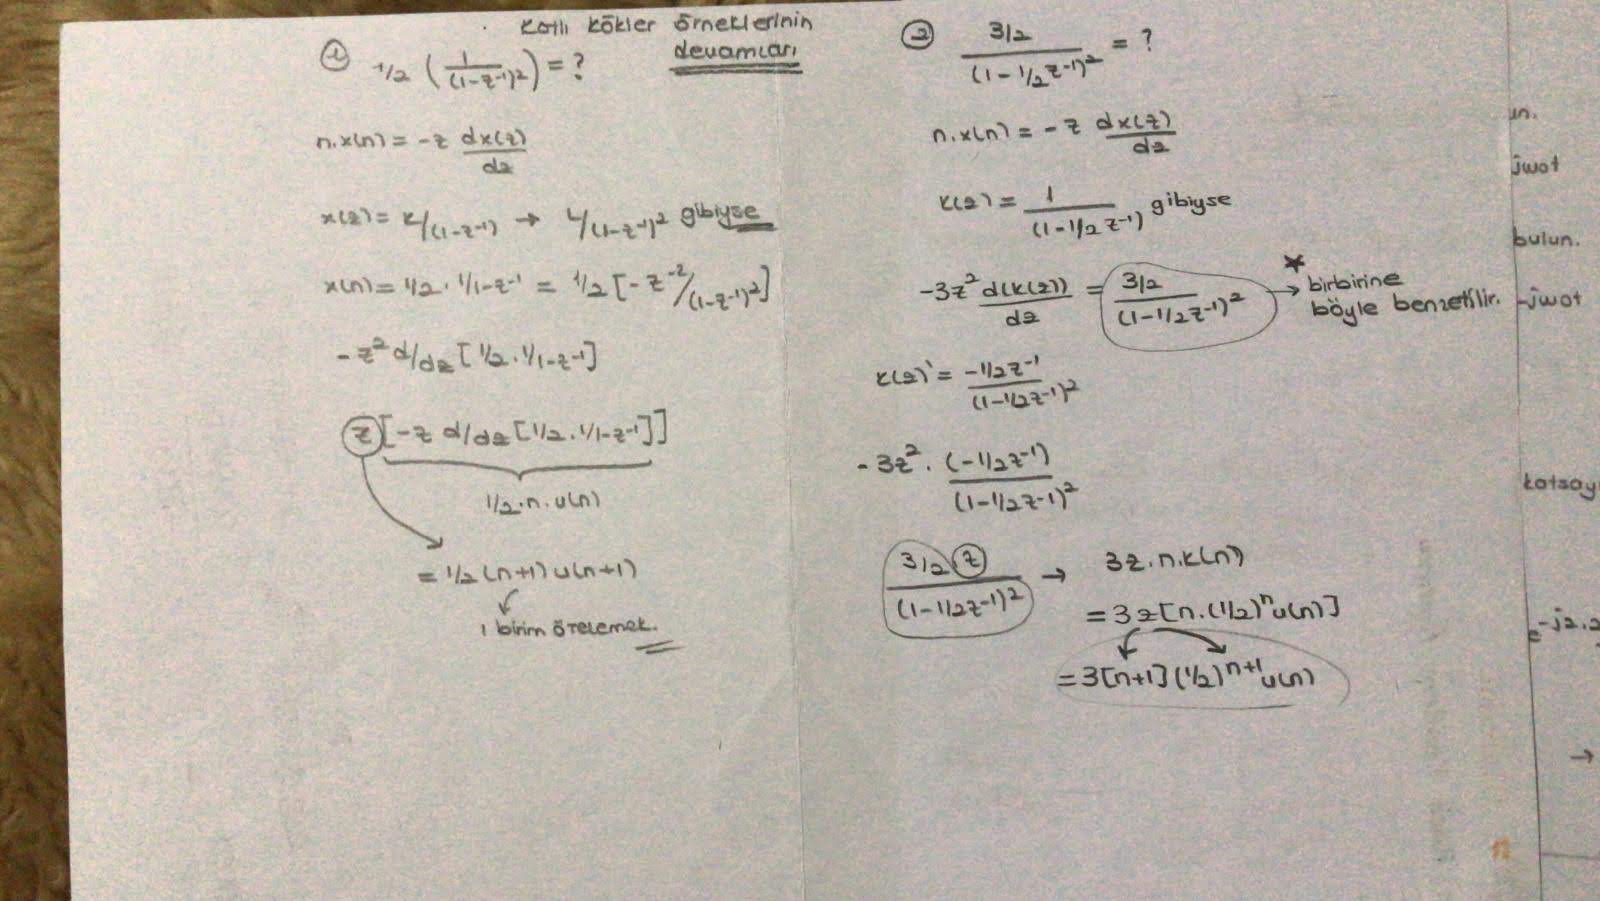 Katlı kökler örneklerinin
devamları
① 1/2 (1/(1-z-1)2) = ?
n.x(n) = -z dx(z)/dz
x(z) = K/(1-z-1) → L/(1-z-1)2 gibiyse
x(n) = 1/2 . 1/1-z-1 = 1/2 [-z-2/(1-z-1)2]
-z2 d/dz [1/2 . 1/1-z-1]
z[-z d/dz [1/2 . 1/1-z-1]]
1/2.n.u(n)
= 1/2 (n+1) u(n+1)
1 birim ötelemek.
② 3/2/(1-1/2z-1)2 = ?
n.x(n) = -z dx(z)/dz
K(z) = 1/(1-1/2z-1) gibiyse
-3z2 d(K(z))/dz = 3/2/(1-1/2z-1)2 → * birbirine
böyle benzetilir.
K(z)' = -1/2z-1/(1-1/2z-1)2
-3z2 . (-1/2z-1)/(1-1/2z-1)2
3/2 z/(1-1/2z-1)2 → 3z.n.k(n)
= 3z[n.(1/2)n u(n)]
= 3[n+1](1/2)n+1 u(n)
un.
jwot
bulun.
-jwot
katsay
e-j2.2
→